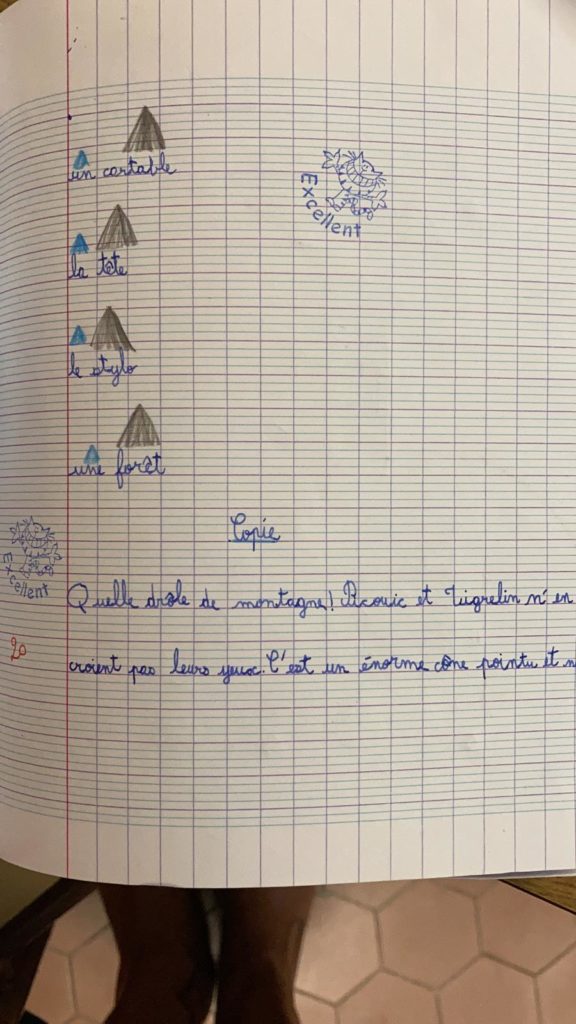 un cartable
Excellent
la tête
le stylo
une forêt
Copie
Excellent
Quelle drôle de montagne! Picouic et Tigrelin n'en
20
croient pas leurs yeux. C'est un énorme cône pointu et n